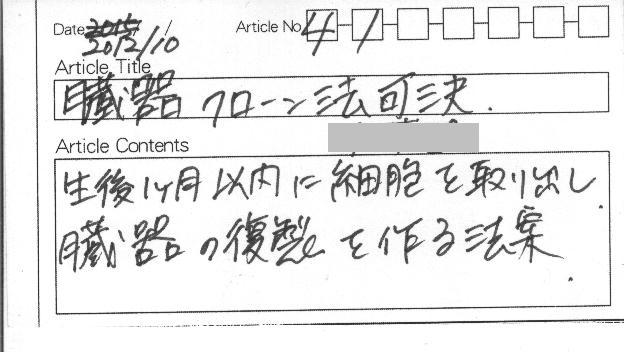 Date 2012/10
Article No 41
Article Title
臓器クローン法可決.
Article Contents
生後1ヶ月以内に細胞を取り出し.
臓器の復製を作る法案.